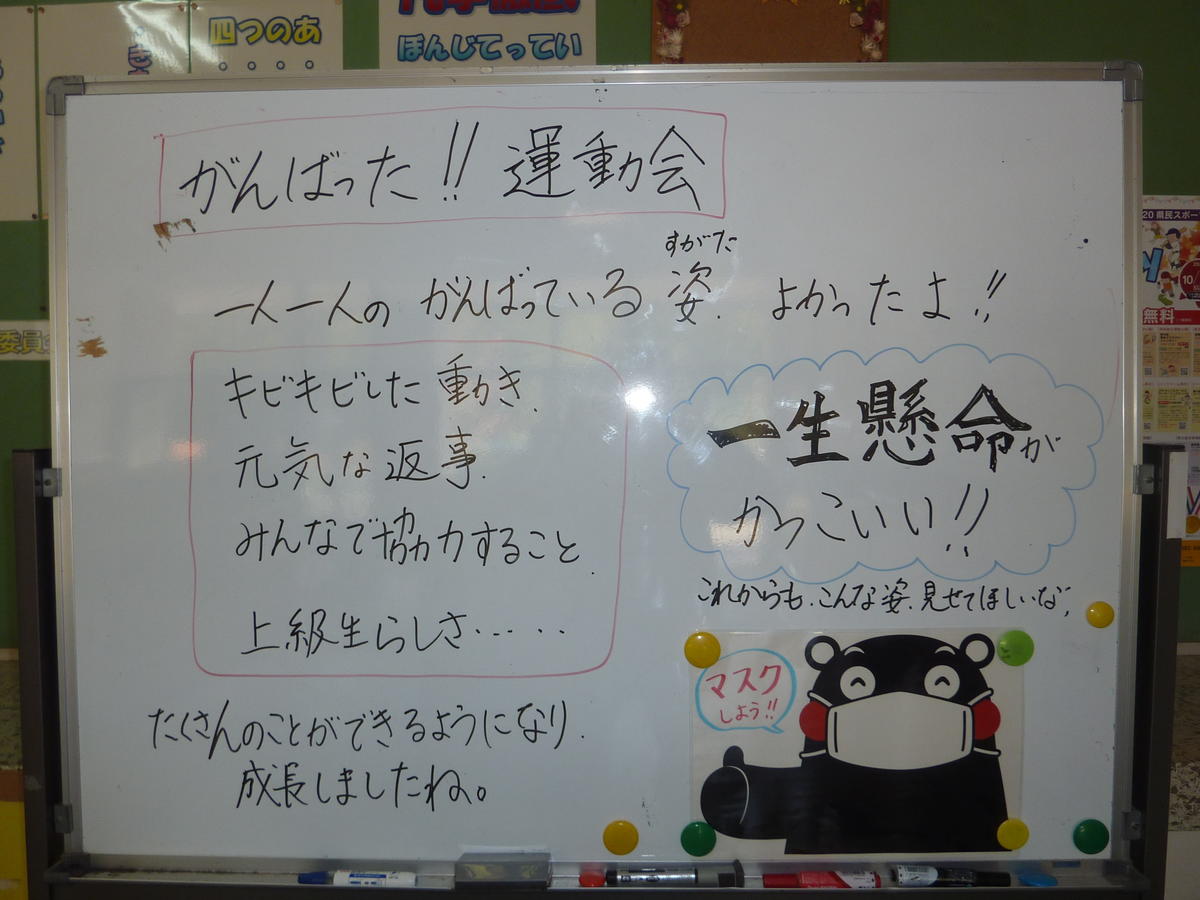 四つのあ
ほんじてってい
がんばった!! 運動会
すがた
一人一人の がんばっている 姿. よかったよ!!
キビキビした 動き.
元気な返事.
みんなで協力すること.
上級生らしさ……
たくさんのことができるようになり.
成長しましたね。
一生懸命が
かっこいい!!
これからも.こんな姿.見せてほしいな,
マスク
しよう!!
委員会
20 県民スポー
10
無料